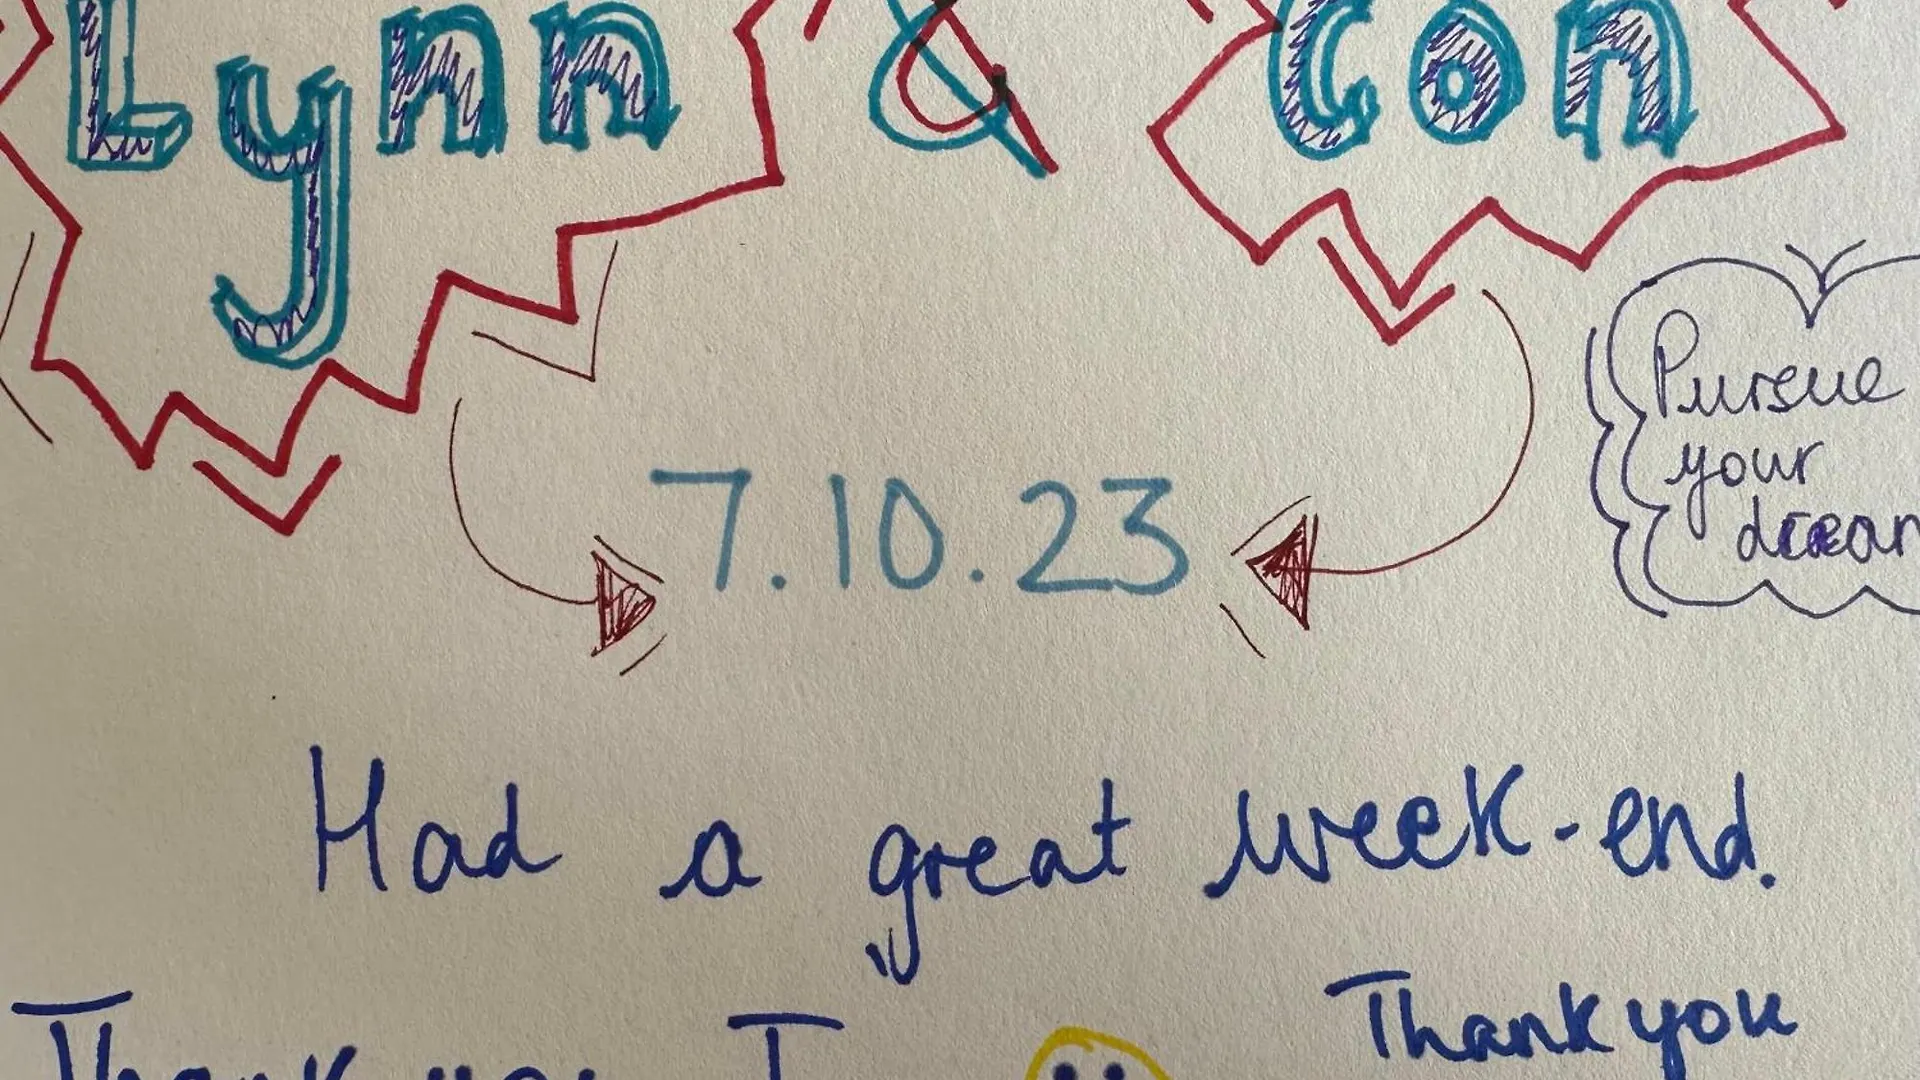 Lynn & Con
7.10.23
Pursue
your
Had a great week-end.
Thank you
Thank you